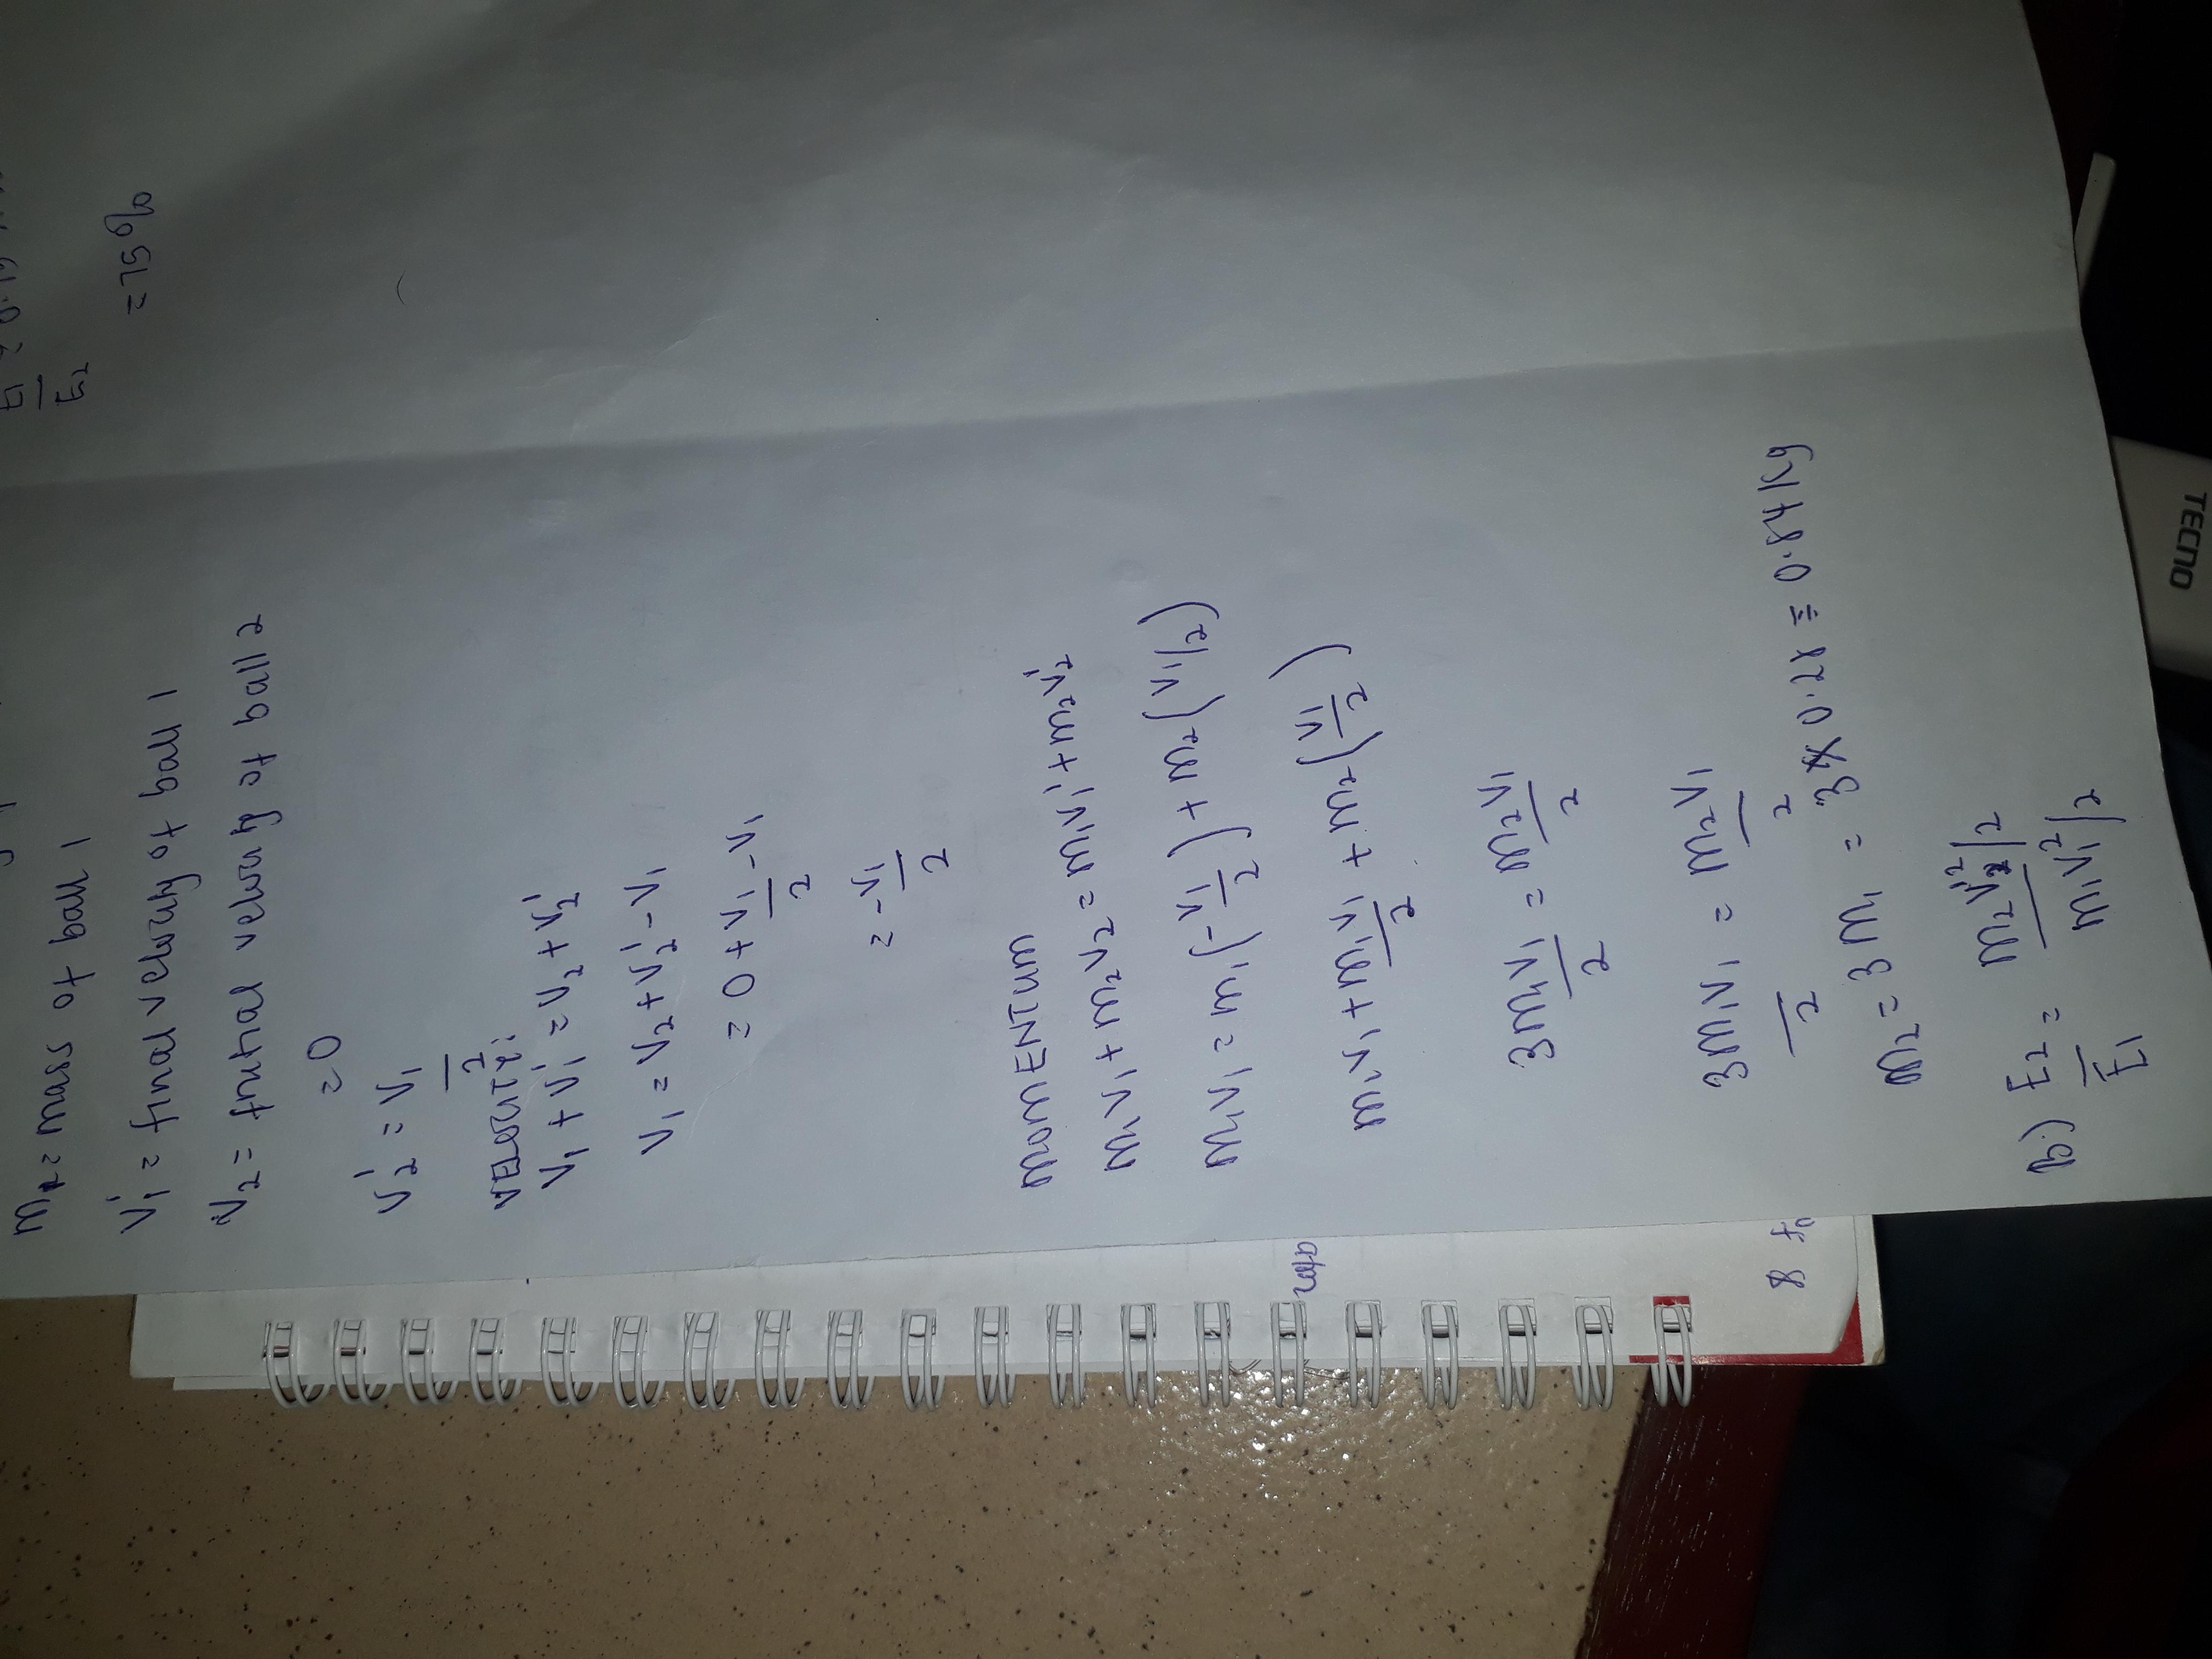 = mass of ball 1
V₁' = final velocity of ball 1
V₂ = initial velocity of ball 2
= 0
V₂' = V₁/2
VELOCITY:
V₁ + V₁' = V₂ + V₂'
V₁ = V₂ + V₂' - V₁
= 0 + V₁/2 - V₁
= -V₁/2
MOMENTUM
m₁V₁ + m₂V₂ = m₁V₁' + m₂V₂'
m₁V₁ = m₁(-V₁/2) + m₂(V₁/2)
m₁V₁ + m₁V₁/2 + m₂(V₁/2)
3m₁V₁/2 = m₂V₁/2
3m₁V₁/2 = m₂V₁/2
m₂ = 3m₁ = 3 x 0.28 = 0.84 kg
b.) E₂/E₁ = m₂V₂'²/2 / m₁V₁²/2
E₁/E₂
= 75%
8
TECNO